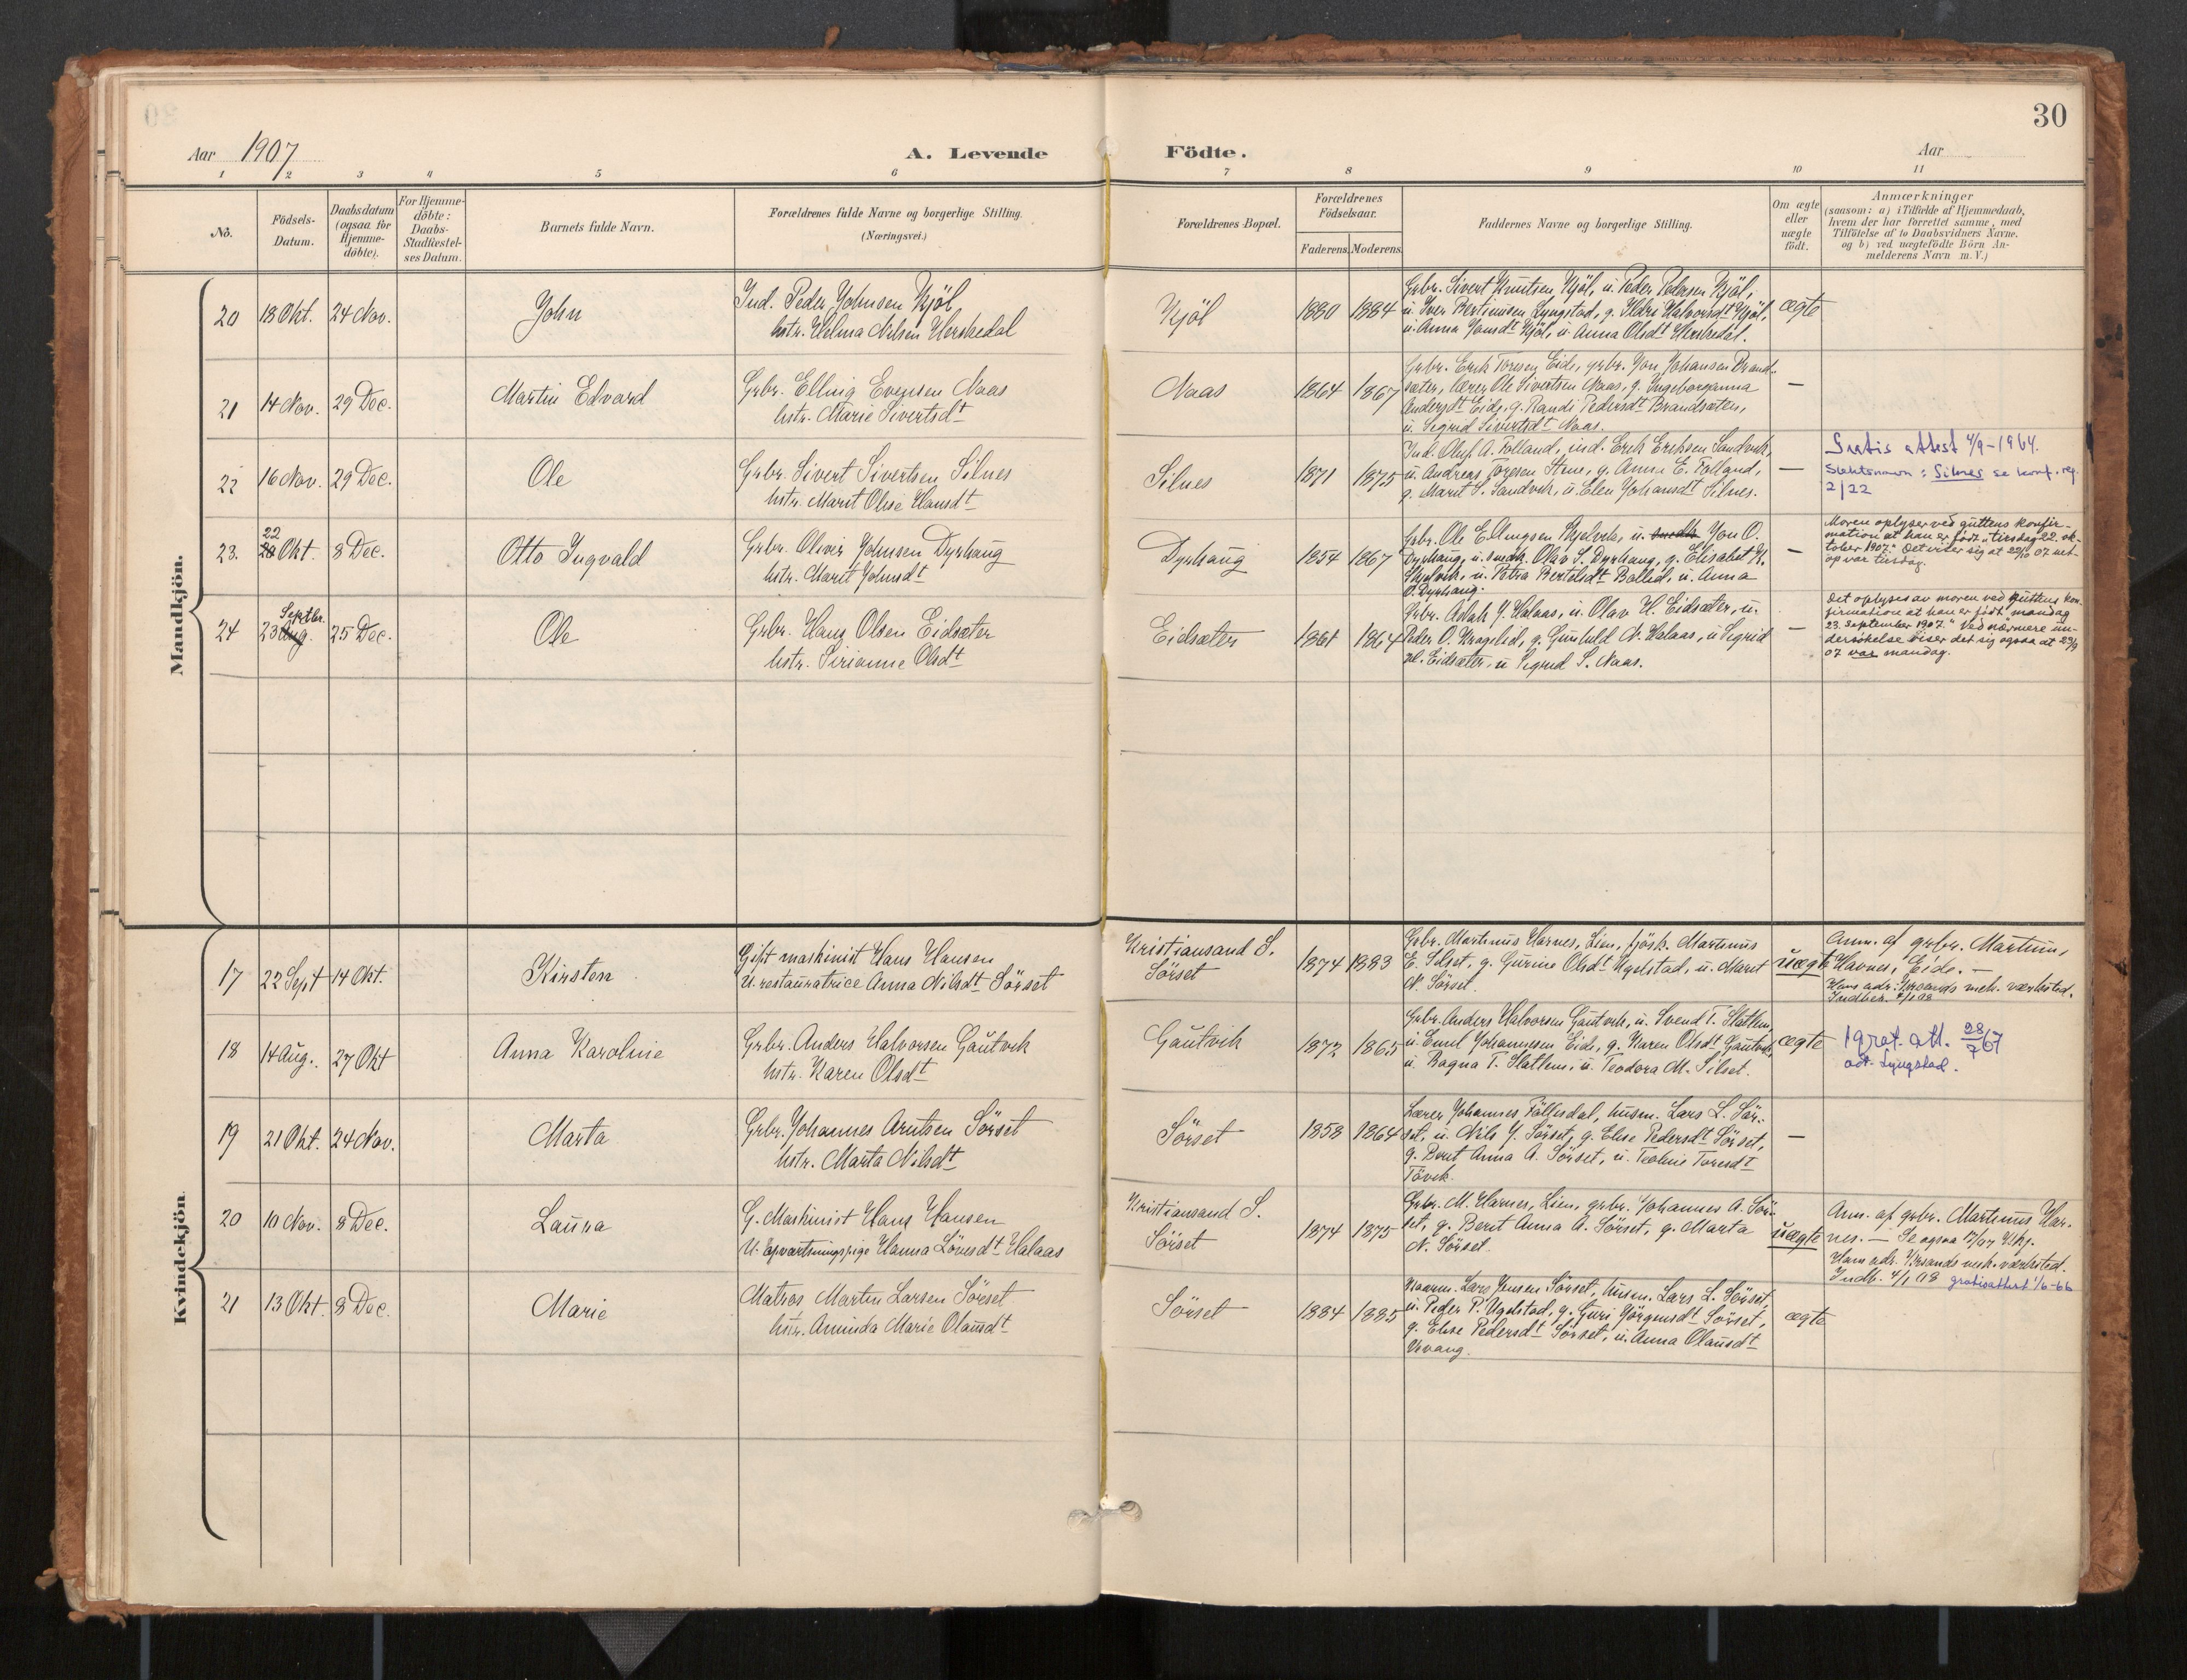 30
Aar 1907
A. Levende Födte.
Aar
1 2 3 4 5 6 7 8 9 10 11
No.
Födsels-
Datum.
Daabsdatum
(ogsaa for
Hjemme-
döbte).
For Hjemme-
döbte:
Daabs-
Stadfæstel-
ses Datum.
Barnets fulde Navn.
Forældrenes fulde Navne og borgerlige Stilling.
(Næringsvei.)
Forældrenes Bopæl.
Forældrenes
Födselsaar.
Faderens. Moderens.
Faddernes Navne og borgerlige Stilling.
Om ægte
eller
uægte
födt.
Anmærkninger
(saasom: a) i Tilfælde af Hjemmedaab,
hvem der har forrettet samme, med
Tilföielse af to Daabsvidners Navne.
og b) ved uægtefödte Börn An-
melderens Navn m.V.)
Mandkjön.
20 18 Okt. 24 Nov.
John
Ind. Peder Johnsen Kjöl
hstr. Helma Nilsen Herskedal
Kjöl
1880 1884
Grbr. Sivert Knutsen Kjöl, u. Peder Pedersen Kjöl,
u. Iver Bertinusen Lyngstad, g. Ildri Halvorsdt Kjöl,
u. Anna Jonsdt Kjöl, u. Anna Olsdt Herskedal.
ægte
21 14 Nov. 29 Dec.
Martin Edvard
Grbr. Elling Evensen Naas
hstr. Marie Sivertsdt
Naas
1864 1867
Grbr. Erik Toresen Eide, grbr. Jon Johansen Brand-
sæter, lærer Ole Sivertsen Naas, g. Ingeborganna
Andersdt Eide, g. Randi Pedersdt Brandsæter,
u. Sigrid Sivertsdt Naas.
—
22 16 Nov. 29 Dec.
Ole
Grbr. Sivert Sivertsen Silnes
hstr. Marit Olise Hansdt
Silnes
1871 1875
Ind. Oluf A. Folland, ind. Erik Eriksen Sandvik,
u. Andreas Toresen Stene, g. Anne E. Folland,
g. Marit S. Sandvik, u. Elen Johansdt Silnes.
—
Gratis attest 4/9-1964.
Slektsnavn: Silnes se konf. reg.
2/22
23. 22 Okt. 8 Dec.
Otto Ingvald
Grbr. Oliver Johnsen Dyrhaug
hstr. Marit Johnsdt
Dyrhaug
1854 1867
Grbr. Ole Ellingsen Skjelvik, u. smedk Jon O.
Dyrhaug, u. smedk. Olav S. Dyrhaug, g. Elisabet K.
Skjelvik, u. Petra Bertelsdt Bollid, u. Anna
O. Dyrhaug.
—
Moren oplyser ved guttens konfir-
mation at han er født "tirsdag 22. ok-
tober 1907". Det viser sig at 22/10 07 net-
op var tirsdag.
24 23 Septbr. Aug. 25 Dec.
Ole
Grbr. Hans Olsen Eidsæter
hstr. Sirianne Olsdt
Eidsæter
1861 1864
Grbr. Aslak J. Halaas, u. Olav H. Eidsæter, u.
Peder O. Kragelid, g. Gunhild N. Halaas, u. Sigrid
H. Eidsæter, u. Sigrid S. Naas.
—
Det oplyses av moren ved guttens kon-
firmation at han er født "mandag
23. september 1907." Ved nærmere un-
dersøkelse viser det sig ogsaa at 23/9
07 var mandag.
Kvindekjön.
17 22 Sept 14 Okt.
Kirsten
Gift maskinist Hans Hansen
U. restauratrice Anna Nilsdt Sörset
Kristiansand S.
Sörset
1874 1883
Grbr. Martinus Harnes, Lien, fjösk. Martinus
E. Silset, g. Gurine Olsdt Ugelstad, u. Marit
N. Sörset.
uægte
Anm. af grbr. Martinus
Havnes, Eide. —
Hans adr: Krsands mek. værksted.
Indber. 4/1 08
18 14 Aug. 27 Okt
Anna Karoline
Grbr. Anders Halvorsen Gautvik
hstr. Karen Olsdt
Gautvik
1872 1865
Grbr. Anders Halvorsen Gautvik, u. Svend T. Slatlem,
u. Emil Johannesen Eide, g. Karen Olsdt Gautvik,
u. Ragna T. Slatlem, u. Teodora M. Silset.
ægte
1 grat. att. 28/7 67
adr. Lyngstad.
19 21 Okt. 24 Nov.
Marta
Grbr. Johannes Arntsen Sörset
hstr. Marta Nilsdt
Sörset
1858 1864
Lærer Johannes Fälledal, husm. Lars L. Sör-
set, u. Nils J. Sörset, g. Elise Pedersdt Sörset,
g. Berit Anna A. Sörset, u. Teoline Toresdt
Tövik.
—
20 10 Nov. 8 Dec.
Laura
G. Maskinist Hans Hansen
U. Opvartningspige Hanna Lönsdt Halaas
Kristiansand S.
Sörset
1874 1875
Grbr. M. Harnes, Lien, grbr. Johannes A. Sör-
set, g. Berit Anna A. Sörset, g. Marta
N. Sörset.
uægte
Anm. af grbr. Martinus Har-
nes. — Se ogsaa 17/07 Kkj.
Hans adr. Krsands mek. værksted.
Indb. 4/1 08 gratisattest 1/6-66
21 13 Okt. 8 Dec.
Marie
Matros Martin Larsen Sörset
hstr. Aminda Marie Olausdt
Sörset
1884 1885
Kaarm. Lars Jensen Sörset, husm. Lars L. Sörset,
u. Peder P. Ugelstad, g. Guri Jörgensdt Sörset,
g. Elise Pedersdt Sörset, u. Anna Olausdt
Vevang.
ægte